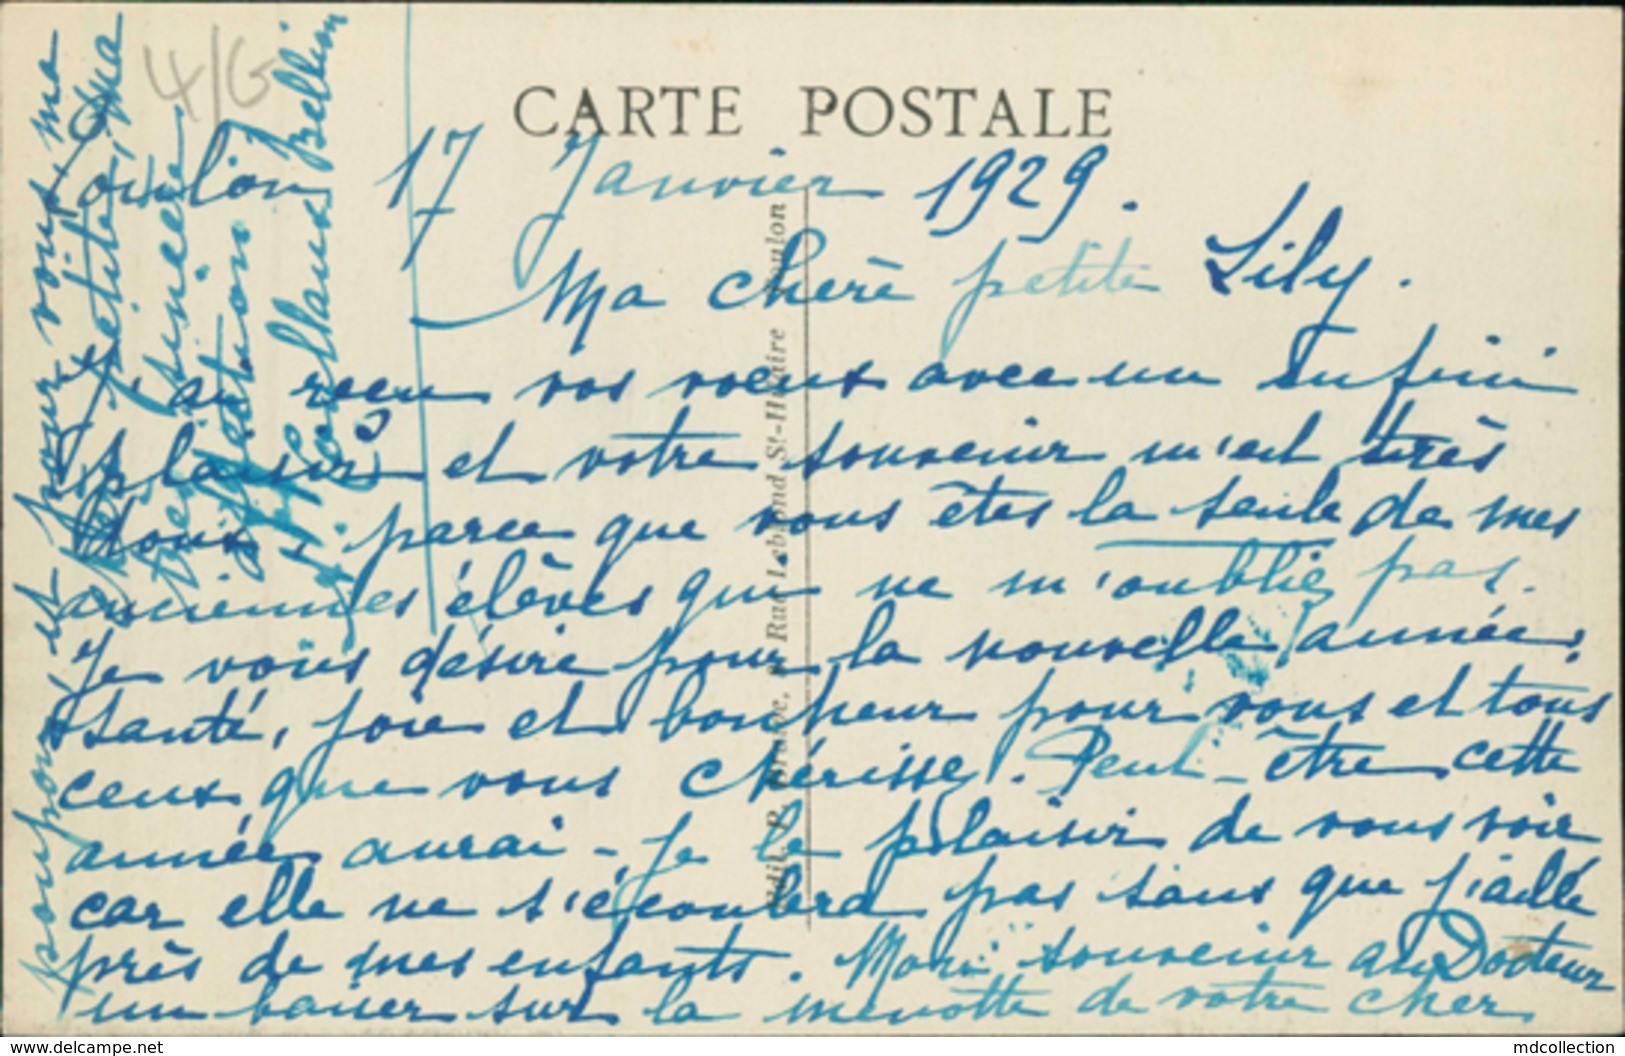 CARTE POSTALE
4/G
Toulon 17 Janvier 1929.
Ma chère petite Lily.
J'ai reçu vos voeux avec un infini
plaisir et votre souvenir m'est très
doux, parce que vous êtes la seule de mes
anciennes élèves qui ne m'oubliez pas.
Je vous désire pour la nouvelle année:
santé, joie et bonheur pour vous et tous
ceux que vous chérissez. Peut-être cette
année aurai-je le plaisir de vous voir
car elle ne s'écoulera pas sans que j'aille
près de mes enfants. Mon souvenir au Docteur
un baiser sur la menotte de votre cher
poupon, et pour vous, ma
petite, ma
bien sincère
affection
Bellion
Edit. Rue Leblond St-Hilaire Toulon
www.delcampe.net
mdcollection